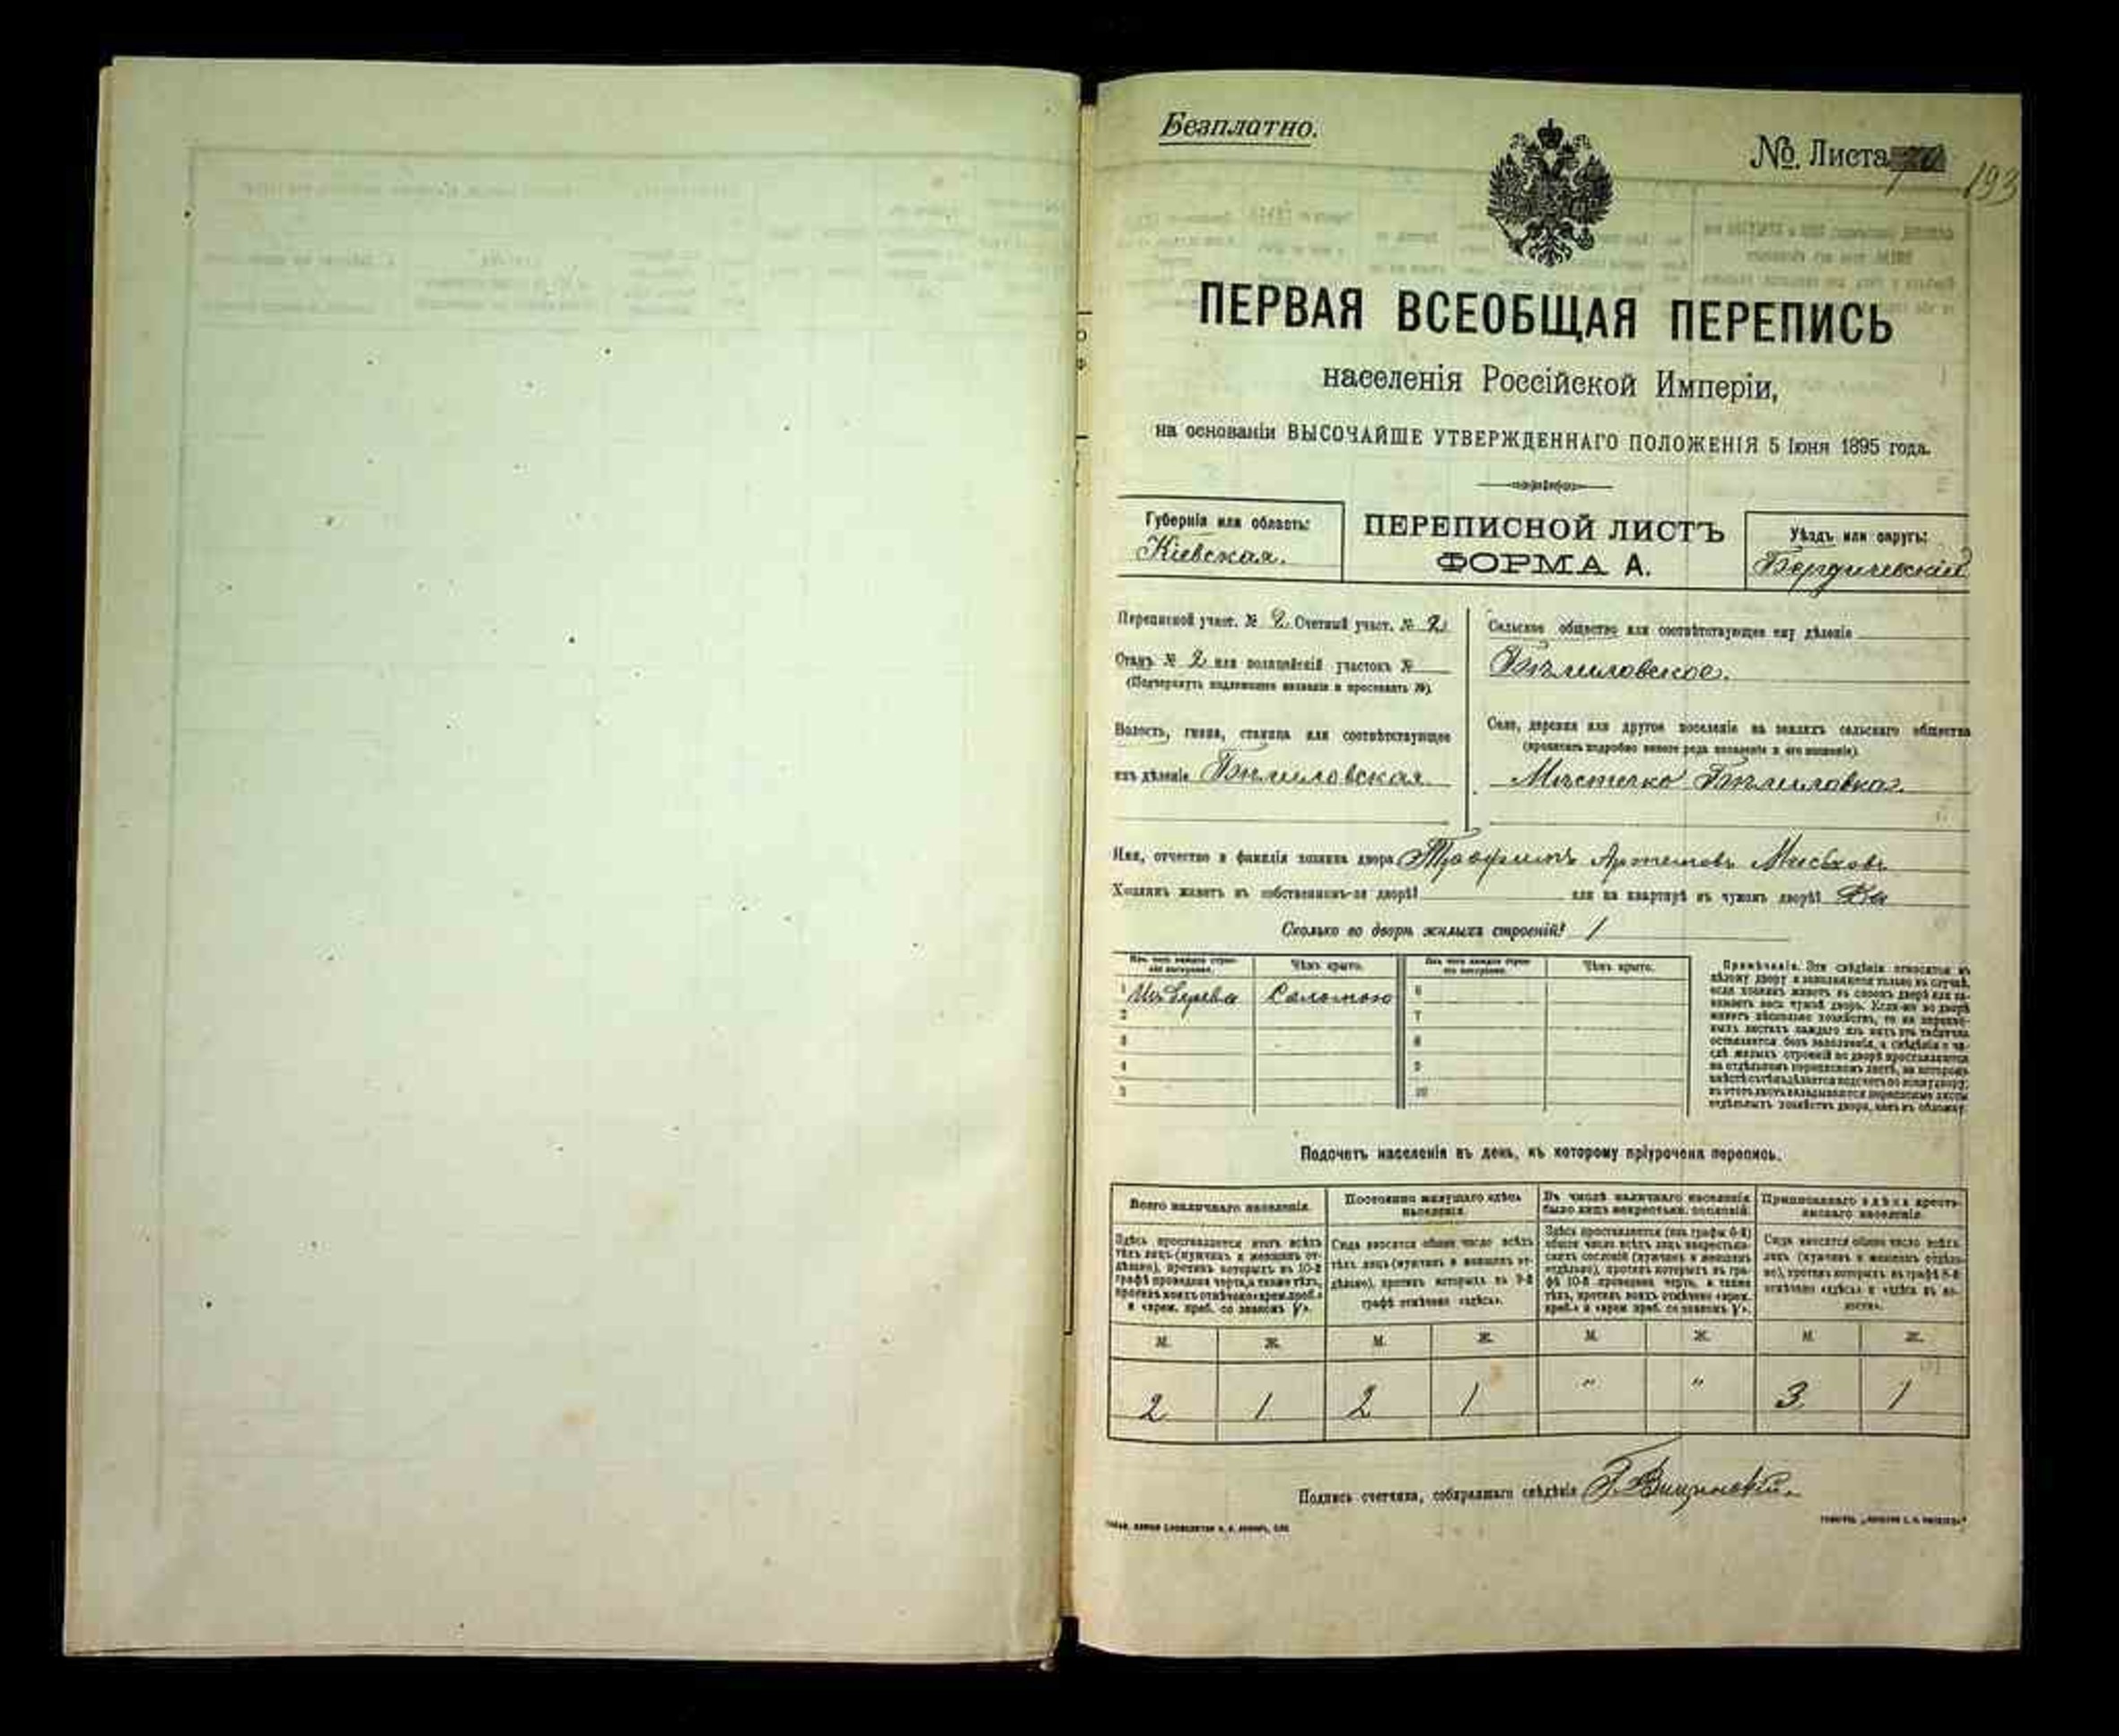 Безплатно.
№ Листа 193
ПЕРВАЯ ВСЕОБЩАЯ ПЕРЕПИСЬ
населенія Россійской Имперіи,
на основаніи ВЫСОЧАЙШЕ УТВЕРЖДЕННАГО ПОЛОЖЕНІЯ 5 Іюня 1895 года.
Губернія или область:
Кіевская.
ПЕРЕПИСНОЙ ЛИСТЪ
ФОРМА А.
Уѣздъ или округъ:
Бердичевскій
Переписной участ. № 2 Счетный участ. № 2
Станъ № 2 или полицейскій участокъ №
(Подчеркнуть надлежащее названіе и проставить №)
Волость, гмина, станица или соотвѣтствующее
ихъ дѣленіе Бѣлиловская
Сельское общество или соотвѣтствующее ему дѣленіе
Бѣлиловское.
Село, деревня или другое поселеніе на земляхъ сельскаго общества
(прописать подробно какого рода поселеніе и его названіе).
Мѣстечко Бѣлиловка.
Имя, отчество и фамилія хозяина двора Трофимъ Артемовъ
Хозяинъ живетъ въ собственномъ-ли дворѣ? или на квартирѣ въ чужомъ дворѣ?
Сколько во дворѣ жилыхъ строеній? 1
Изъ чего каждое строеніе выстроено. Чѣмъ крыто. Изъ чего каждое строеніе выстроено. Чѣмъ крыто.
1 Изъ дерева Соломою 6
2 7
3 8
4 9
5 10
Примѣчаніе. Эти свѣдѣнія относятся къ
цѣлому двору и заполняются только въ случаѣ,
если хозяинъ живетъ въ своемъ дворѣ или занимаетъ весь чужой дворъ. Если-же во дворѣ
живетъ нѣсколько хозяйствъ, то на переписныхъ листахъ каждаго изъ нихъ эта табличка
оставляется безъ заполненія, а свѣдѣнія о числѣ жилыхъ строеній во дворѣ проставляются
на отдѣльномъ переписномъ листѣ, на которомъ
вмѣстѣ съ тѣмъ дѣлается подсчетъ по всему двору;
въ этотъ листъ вкладываются переписные листы
отдѣльныхъ хозяйствъ двора, какъ въ обложку.
Подсчетъ населенія въ день, къ которому пріурочена перепись.
Всего наличнаго населенія.
Здѣсь проставляется итогъ всѣхъ
тѣхъ лицъ (мужчинъ и женщинъ отдѣльно), противъ которыхъ въ 10-й
графѣ проведена черта, а также тѣхъ,
противъ коихъ отмѣчено «врем. преб.»
и «врем. преб. со знакомъ V».
Постоянно живущаго здѣсь
населенія.
Сюда вносится общее число всѣхъ
тѣхъ лицъ (мужчинъ и женщинъ отдѣльно), противъ которыхъ въ 9-й
графѣ отмѣчено «здѣсь».
Въ числѣ наличнаго населенія
было лицъ некрестьян. сословій.
Здѣсь проставляется (изъ графы 6-й)
общее число всѣхъ лицъ некрестьянскихъ сословій (мужчинъ и женщинъ
отдѣльно), противъ которыхъ въ графѣ 10-й проведена черта, а также
тѣхъ, противъ коихъ отмѣчено «врем.
преб.» и «врем. преб. со знакомъ V».
Приписаннаго здѣсь крестьянскаго населенія.
Сюда вносится общее число всѣхъ
лицъ (мужчинъ и женщинъ отдѣльно), противъ которыхъ въ графѣ 8-й
отмѣчено «здѣсь» и «здѣсь въ волости».
М. Ж. М. Ж. М. Ж. М. Ж.
2 1 2 1 " " 3 1
Подпись счетчика, собиравшаго свѣдѣнія